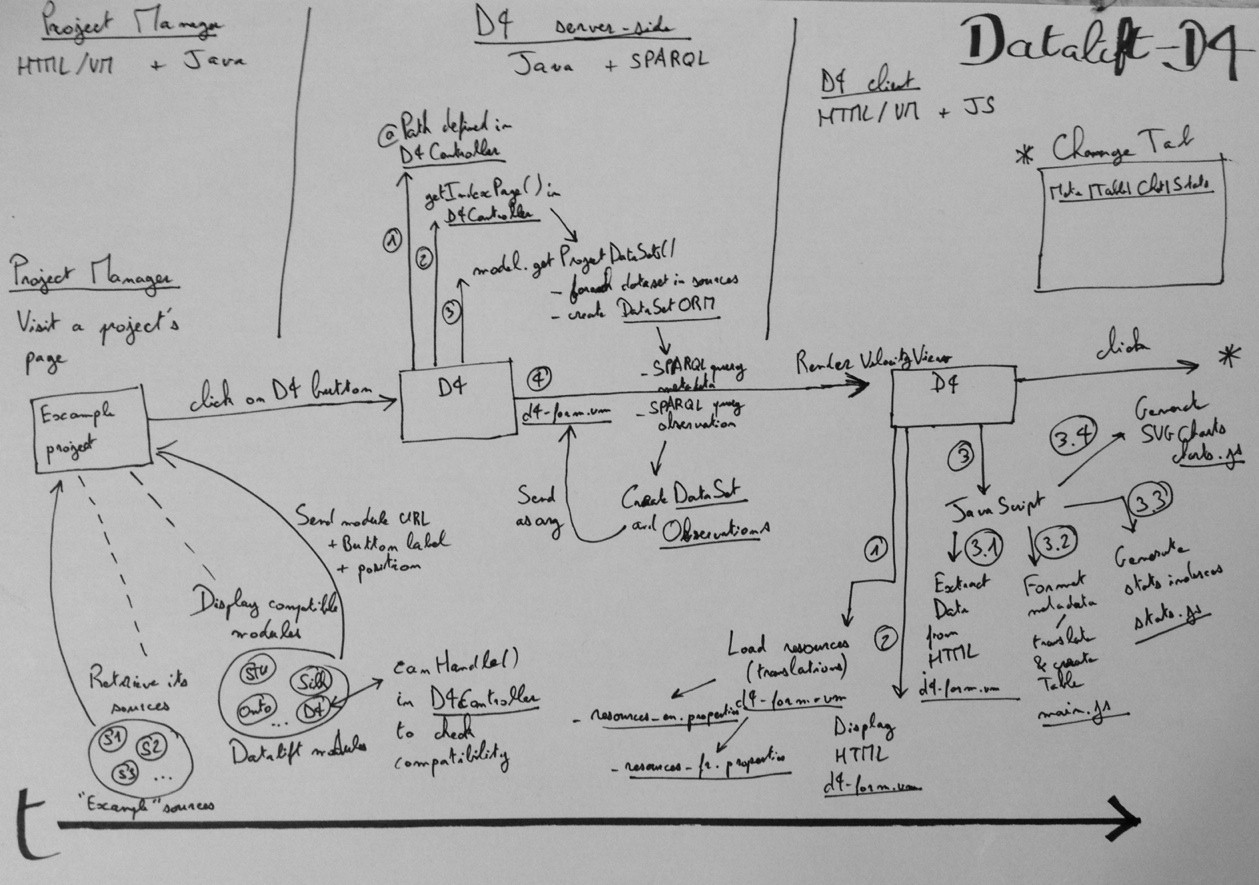 Project Manager
HTML/VM + Java
D4 server-side
Java + SPARQL
Datalift-D4
D4 client
HTML/VM + JS
* Change Tab
Meta|Table|Chrt|Stats
@Path defined in
D4Controller
getIndexPage() in
D4Controller
1
2
3
model.getProjectDataSets()
- foreach dataset in sources
- create DataSetORM
- SPARQL query
metadata
- SPARQL query
observation
Create DataSet
and Observations
Send
as arg
Project Manager
Visit a project's
page
Example
project
click on D4 button
D4
4
d4-form.vm
Render VelocityView
D4
click
*
Send module URL
+ Button label
+ position
Display compatible
modules
StV
Silk
Onto
...
D4
Datalift modules
canHandle()
in D4Controller
to check
compatibility
Retrieve its
sources
S1
S2
S3
...
"Example" sources
1
Load resources
(translations)
d4-form.vm
- resources-en.properties
- resources-fr.properties
2
Display
HTML
d4-form.vm
3
JavaScript
3.1
Extract
Data
from
HTML
d4-form.vm
3.2
Format
metadata
/
translate
& create
Table
main.js
3.3
Generate
stats indexes
stats.js
3.4
Generate
SVG Charts
charts.js
t